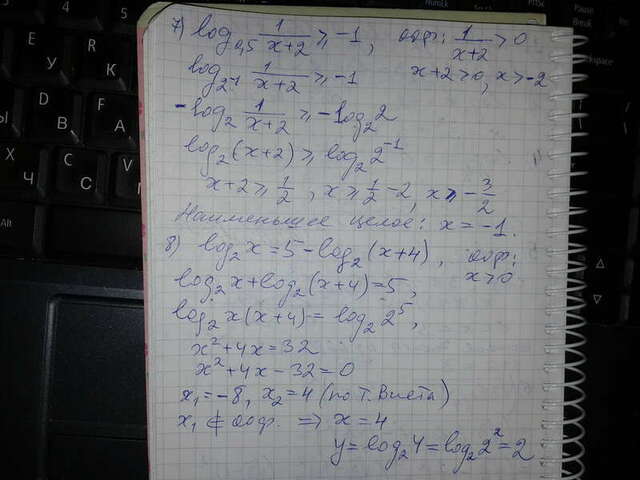 7) log₀,₅ 1/(x+2) ≥ -1, оофр: 1/(x+2) > 0
log₂₋₁ 1/(x+2) ≥ -1 x+2>0, x>-2
-log₂ 1/(x+2) ≥ -1log₂2
log₂(x+2) ≥ log₂2⁻¹
x+2 ≥ 1/2, x ≥ 1/2 -2, x ≥ -3/2
Наименьшее целое: x = -1.
8) log₂x = 5 - log₂(x+4), оофр: x>0
log₂x + log₂(x+4) = 5,
log₂x(x+4) = log₂2⁵,
x² + 4x = 32
x² + 4x - 32 = 0
x₁ = -8, x₂ = 4 (по т. Виета)
x₁ ∉ оофр. ⇒ x = 4
y = log₂4 = log₂2² = 2